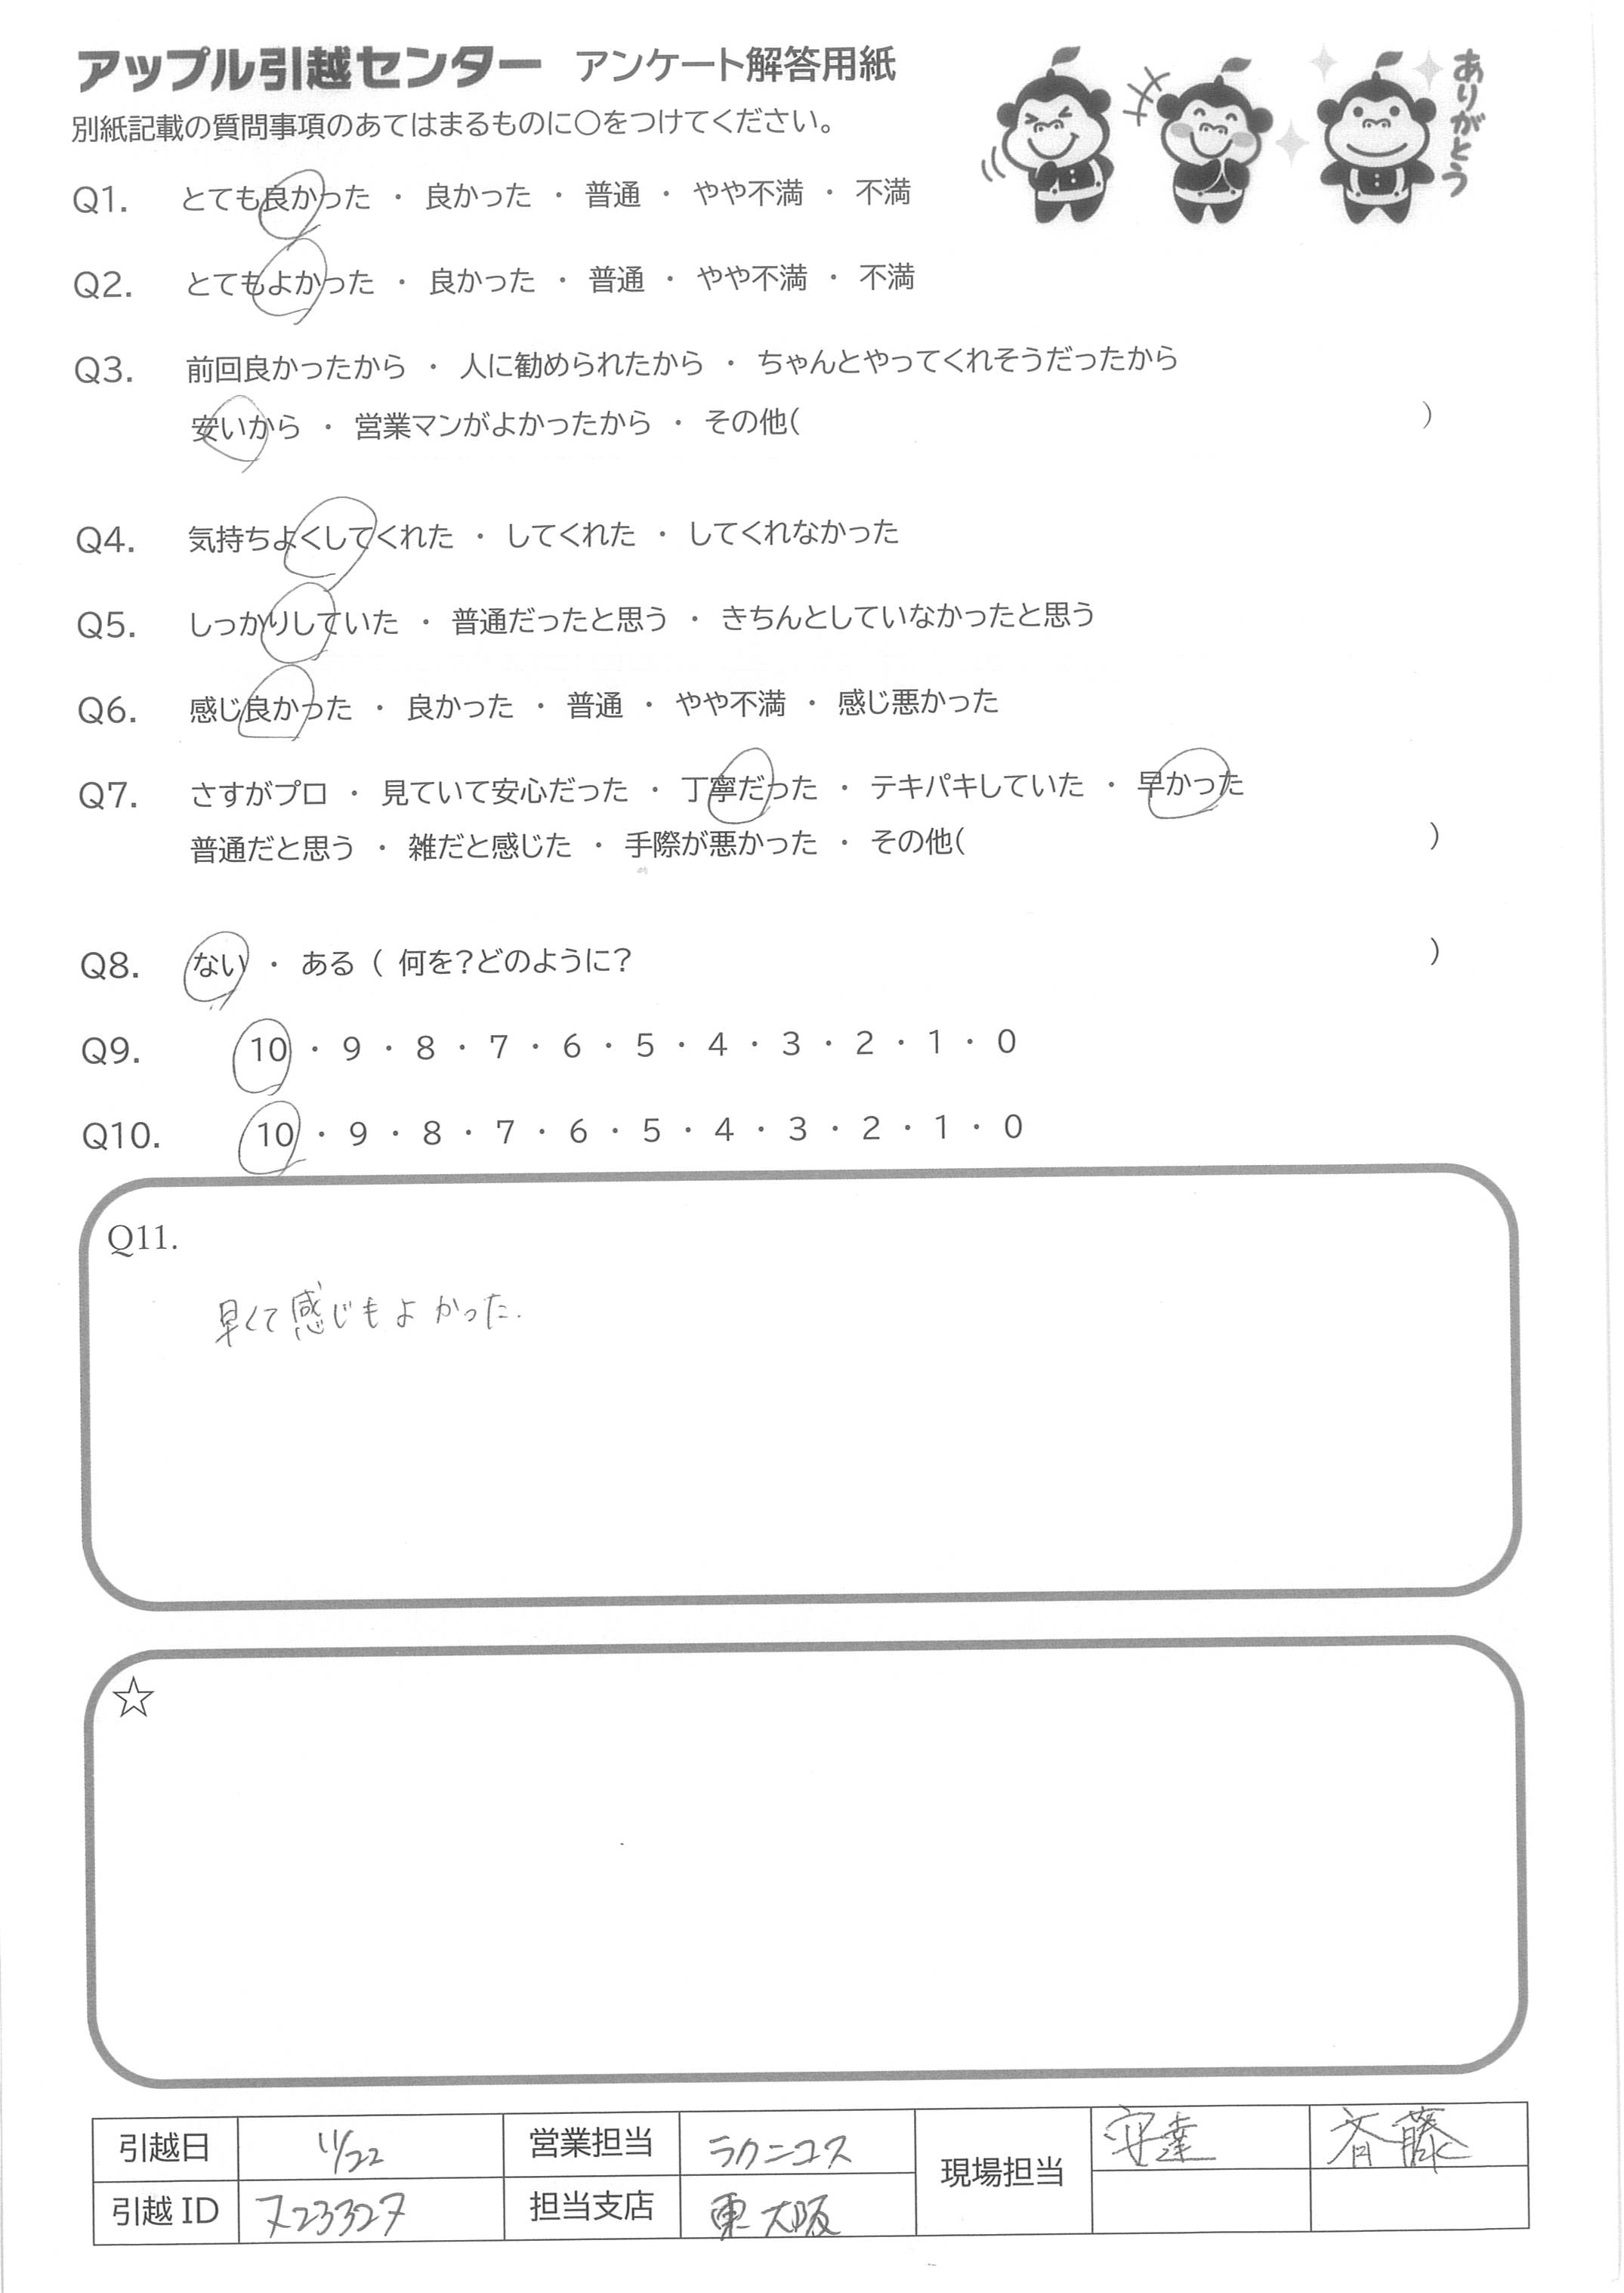 アップル引越センター アンケート解答用紙
ありがとう
別紙記載の質問事項のあてはまるものに○をつけてください。
Q1. とても良かった ・ 良かった ・ 普通 ・ やや不満 ・ 不満
Q2. とてもよかった ・ 良かった ・ 普通 ・ やや不満 ・ 不満
Q3. 前回良かったから ・ 人に勧められたから ・ ちゃんとやってくれそうだったから
安いから ・ 営業マンがよかったから ・ その他( )
Q4. 気持ちよくしてくれた ・ してくれた ・ してくれなかった
Q5. しっかりしていた ・ 普通だったと思う ・ きちんとしていなかったと思う
Q6. 感じ良かった ・ 良かった ・ 普通 ・ やや不満 ・ 感じ悪かった
Q7. さすがプロ ・ 見ていて安心だった ・ 丁寧だった ・ テキパキしていた ・ 早かった
普通だと思う ・ 雑だと感じた ・ 手際が悪かった ・ その他( )
Q8. ない ・ ある ( 何を?どのように? )
Q9. 10 ・ 9 ・ 8 ・ 7 ・ 6 ・ 5 ・ 4 ・ 3 ・ 2 ・ 1 ・ 0
Q10. 10 ・ 9 ・ 8 ・ 7 ・ 6 ・ 5 ・ 4 ・ 3 ・ 2 ・ 1 ・ 0
Q11.
早くて感じもよかった.
☆
引越日 11/22 営業担当 ラクニコス 現場担当 斉藤
引越ID 723327 担当支店 東大阪